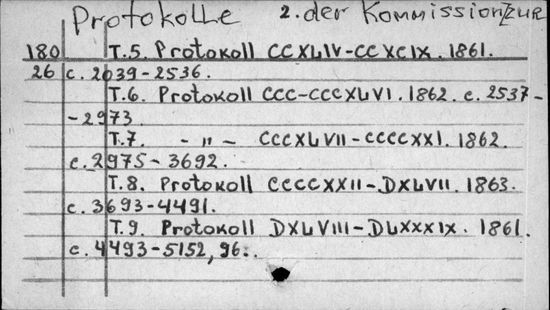 Protokolle 2. der Kommission zur
180 T.5. Protokoll CCXLIV-CCXCIX. 1861.
26 c. 2039-2536.
T.6. Protokoll CCC-CCCXLVI. 1862. c. 2537-
-2973.
T.7. - " - CCCXLVII-CCCCXXI. 1862.
c. 2975-3692.
T.8. Protokoll CCCCXXII-DXLVII. 1863.
c. 3693-4491.
T.9. Protokoll DXLVIII-DLXXXIX. 1861.
c. 4493-5152, 96.